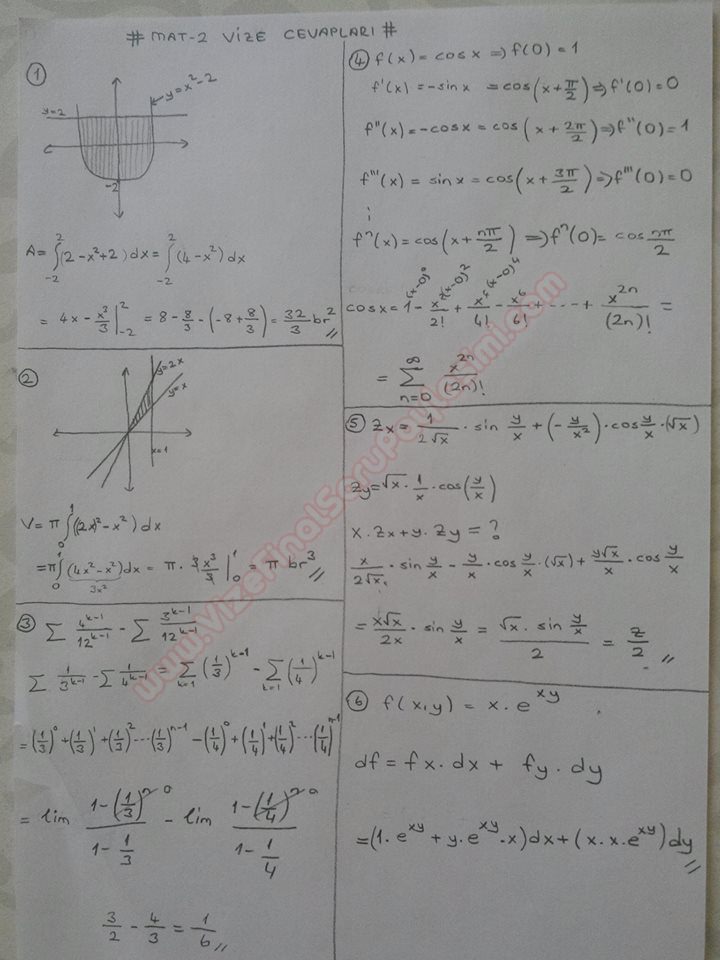 # MAT-2 VİZE CEVAPLARI #
①
y=x²-2
y=2
-2
A= ∫₋₂² (2-x²+2) dx = ∫₋₂² (4-x²) dx
= 4x - x³/3 |₋₂² = 8 - 8/3 - (-8+8/3) = 32/3 br² //
②
y=2x
y=x
x=1
V= π ∫₀¹ ((2x)²-x²) dx
= π ∫₀¹ (4x²-x²) dx = π · 3x³/3 |₀¹ = π br³ //
3x²
③ ∑ 4^(k-1)/12^(k-1) - ∑ 3^(k-1)/12^(k-1)
∑ 1/3^(k-1) - ∑ 1/4^(k-1) = ∑_(k=1) (1/3)^(k-1) - ∑_(k=1) (1/4)^(k-1)
= (1/3)⁰+(1/3)¹+(1/3)²...(1/3)^(n-1) - (1/4)⁰+(1/4)¹+(1/4)²...(1/4)^(n-1)
= lim (1-(1/3)^n)/(1-1/3) - lim (1-(1/4)^n)/(1-1/4)
0
0
3/2 - 4/3 = 1/6 //
④ f(x) = cosx ⇒ f(0) = 1
f'(x) = -sinx = cos(x+π/2) ⇒ f'(0) = 0
f''(x) = -cosx = cos(x+2π/2) ⇒ f''(0) = 1
f'''(x) = sinx = cos(x+3π/2) ⇒ f'''(0) = 0
⋮
fⁿ(x) = cos(x+nπ/2) ⇒ fⁿ(0) = cos nπ/2
(x-0)⁰ (x-0)² (x-0)⁴
cosx = 1 - x²/2! + x⁴/4! - x⁶/6! + ... + x^(2n)/(2n)! =
= ∑_(n=0)^∞ x^(2n)/(2n)!
⑤ Zx = 1/(2√x) · sin y/x + (-y/x²) · cos y/x · (√x)
Zy = √x · 1/x · cos(y/x)
x·Zx + y·Zy = ?
x/(2√x) · sin y/x - y/x · cos y/x · (√x) + y√x/x · cos y/x
= x√x/2x · sin y/x = (√x · sin y/x)/2 = z/2 //
⑥ f(x,y) = x·e^(xy)
df = fx·dx + fy·dy
= (1·e^(xy) + y·e^(xy)·x)dx + (x·x·e^(xy))dy //
www.VizeFinalSoruPaylasimi.com